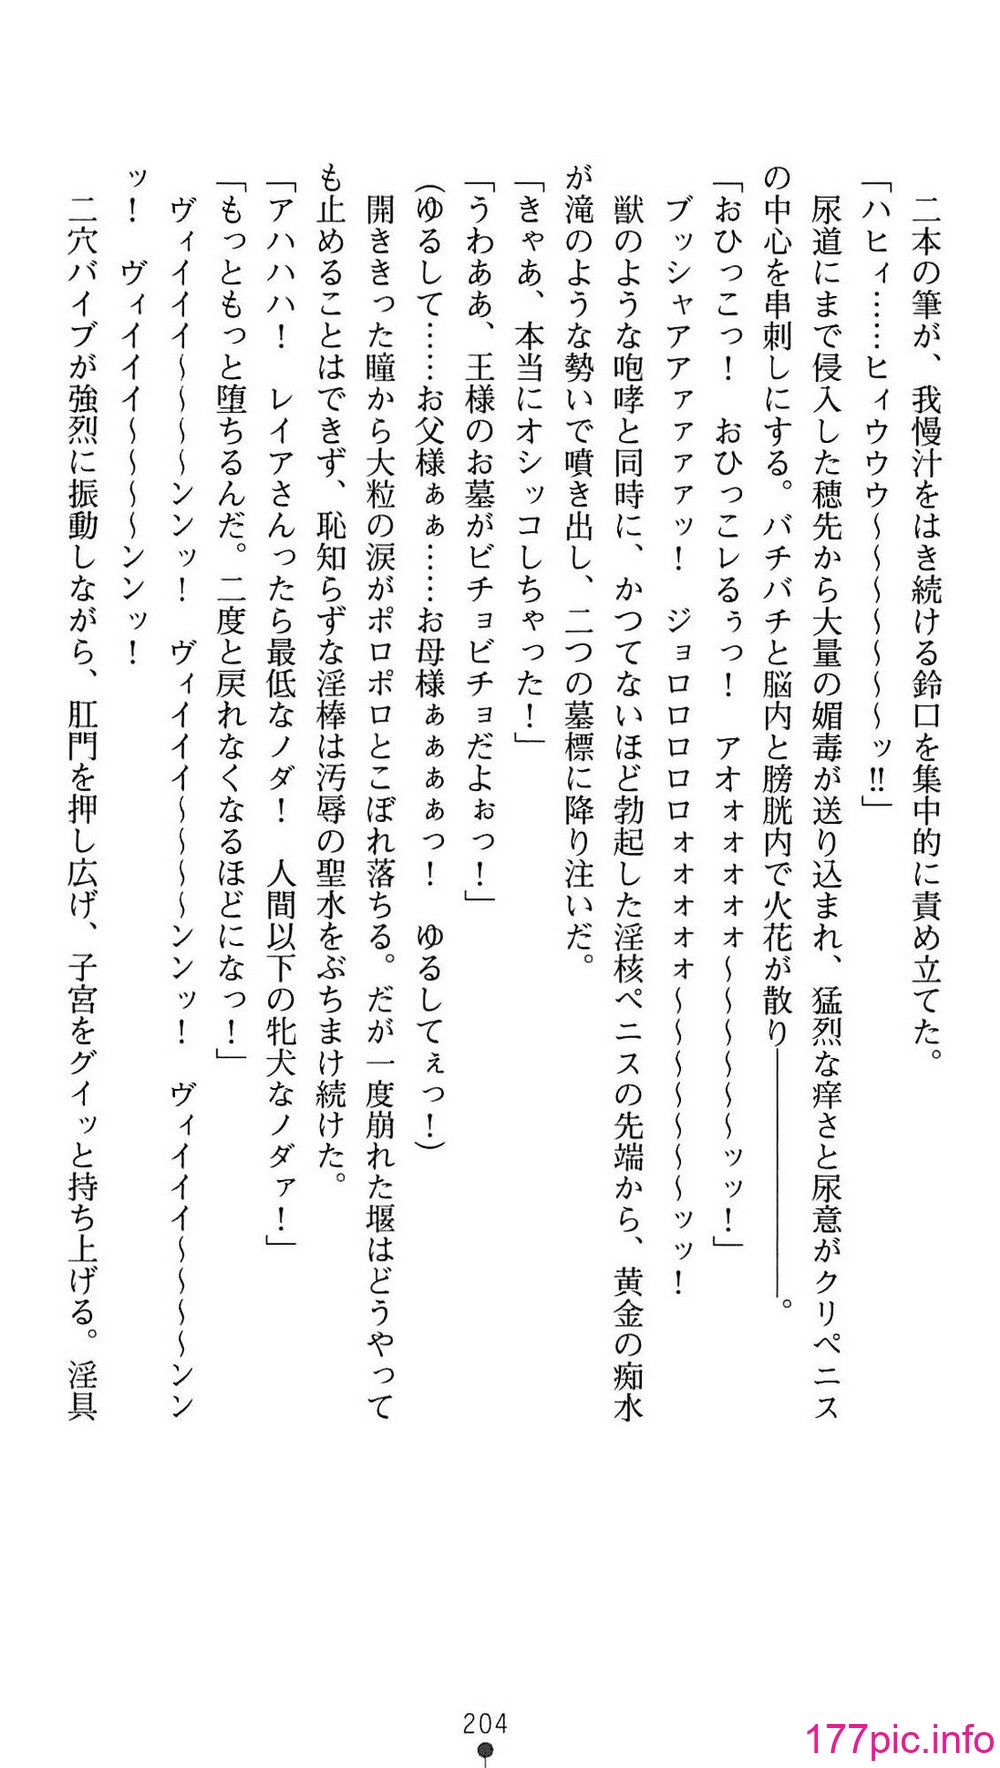 二本の筆が、我慢汁をはき続ける鈴口を集中的に責め立てた。
「ハヒィ……ヒィウウウ～～～～～～～ッ!!」
尿道にまで侵入した穂先から大量の媚毒が送り込まれ、猛烈な痒さと尿意がクリペニス
の中心を串刺しにする。バチバチと脳内と膀胱内で火花が散り――――――――。
「おひっこっ！　おひっこレるぅっ！　アオォォォォォ～～～～～～ッッ！」
ブッシャアアアァァァァッ！　ジョロロロロロロォォォォォ～～～～～～～ッッ！
獣のような咆哮と同時に、かつてないほど勃起した淫核ペニスの先端から、黄金の痴水
が滝のような勢いで噴き出し、二つの墓標に降り注いだ。
「きゃあ、本当にオシッコしちゃった！」
「うわああ、王様のお墓がビチョビチョだよぉっ！」
（ゆるして……お父様ぁぁ……お母様ぁぁぁぁっ！　ゆるしてぇっ！）
開ききった瞳から大粒の涙がポロポロとこぼれ落ちる。だが一度崩れた堰はどうやって
も止めることはできず、恥知らずな淫棒は汚辱の聖水をぶちまけ続けた。
「アハハハ！　レイアさんったら最低なノダ！　人間以下の牝犬なノダァ！」
「もっともっと堕ちるんだ。二度と戻れなくなるほどになっ！」
ヴィイイイ～～～～ンンッ！　ヴィイイイ～～～～ンンッ！　ヴィイイイ～～～～ンン
ッ！　ヴィイイイイ～～～～ンンッ！
二穴バイブが強烈に振動しながら、肛門を押し広げ、子宮をグイッと持ち上げる。淫具
204
177pic.info